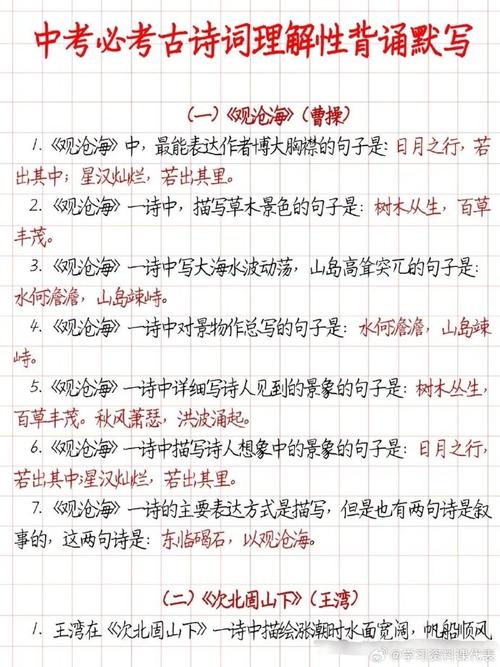 中考必考古诗词理解性背诵默写
(一)《观沧海》(曹操)
1.《观沧海》中,最能表达作者博大胸襟的句子是:日月之行,若
出其中;星汉灿烂,若出其里。
2.《观沧海》一诗中,描写草木景色的句子是:树木丛生,百草
丰茂。
3.《观沧海》一诗中写大海水波动荡,山岛高耸突兀的句子是:
水何澹澹,山岛竦峙。
4.《观沧海》一诗中对景物作总写的句子是:水何澹澹,山岛竦
峙。
5.《观沧海》一诗中详细写诗人见到的景象的句子是:树木丛生,
百草丰茂。秋风萧瑟,洪波涌起。
6.《观沧海》一诗中描写诗人想象中的景象的句子是:日月之行,
若出其中;星汉灿烂,若出其里。
7.《观沧海》一诗的主要表达方式是描写,但是也有两句诗是叙
事的,这两句诗是:东临碣石,以观沧海。
(二)《次北固山下》(王湾)
1.王湾在《次北固山下》一诗中描绘涨潮时水面宽阔,帆船顺风
@学习资料课代表